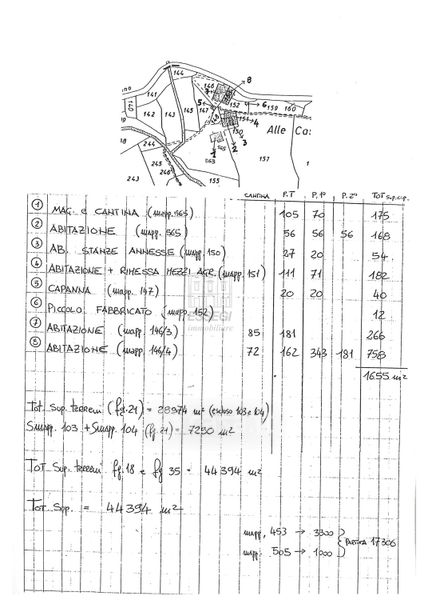 144
141
142
143
145
146
147
8
7
5
6
152
159
160
4
150
3
2
1
Alle Ca:
157
244
243
245
246
253
563
CANTINA P.T P.1° P.2° TOT sup. cop.
1 MAG. e CANTINA (mapp. 565) 105 70 175
2 ABITAZIONE (mapp. 565) 56 56 56 168
3 AB. STANZE ANNESSE (mapp. 150) 27 20 54
4 ABITAZIONE + RIMESSA MEZZI AGR. (mapp. 151) 111 71 182
5 CAPANNA (mapp. 147) 20 20 40
6 PICCOLO FABBRICATO (mapp. 152) 12
7 ABITAZIONE (mapp. 146/3) 85 181 266
8 ABITAZIONE (mapp. 146/4) 72 162 343 181 758
immobiliare
1655 m²
Tot. Sup. terreni (fg. 21) = 29974 m² (escluso 103 e 104)
Smapp. 103 + Smapp. 104 (fg. 21) = 7250 m²
TOT Sup. terreni fg. 18 e fg 35 = 44394 m²
Tot. Sup. = 44394 m²
mapp. 453 → 3300
PARTITA 17306
mapp. 505 → 1000